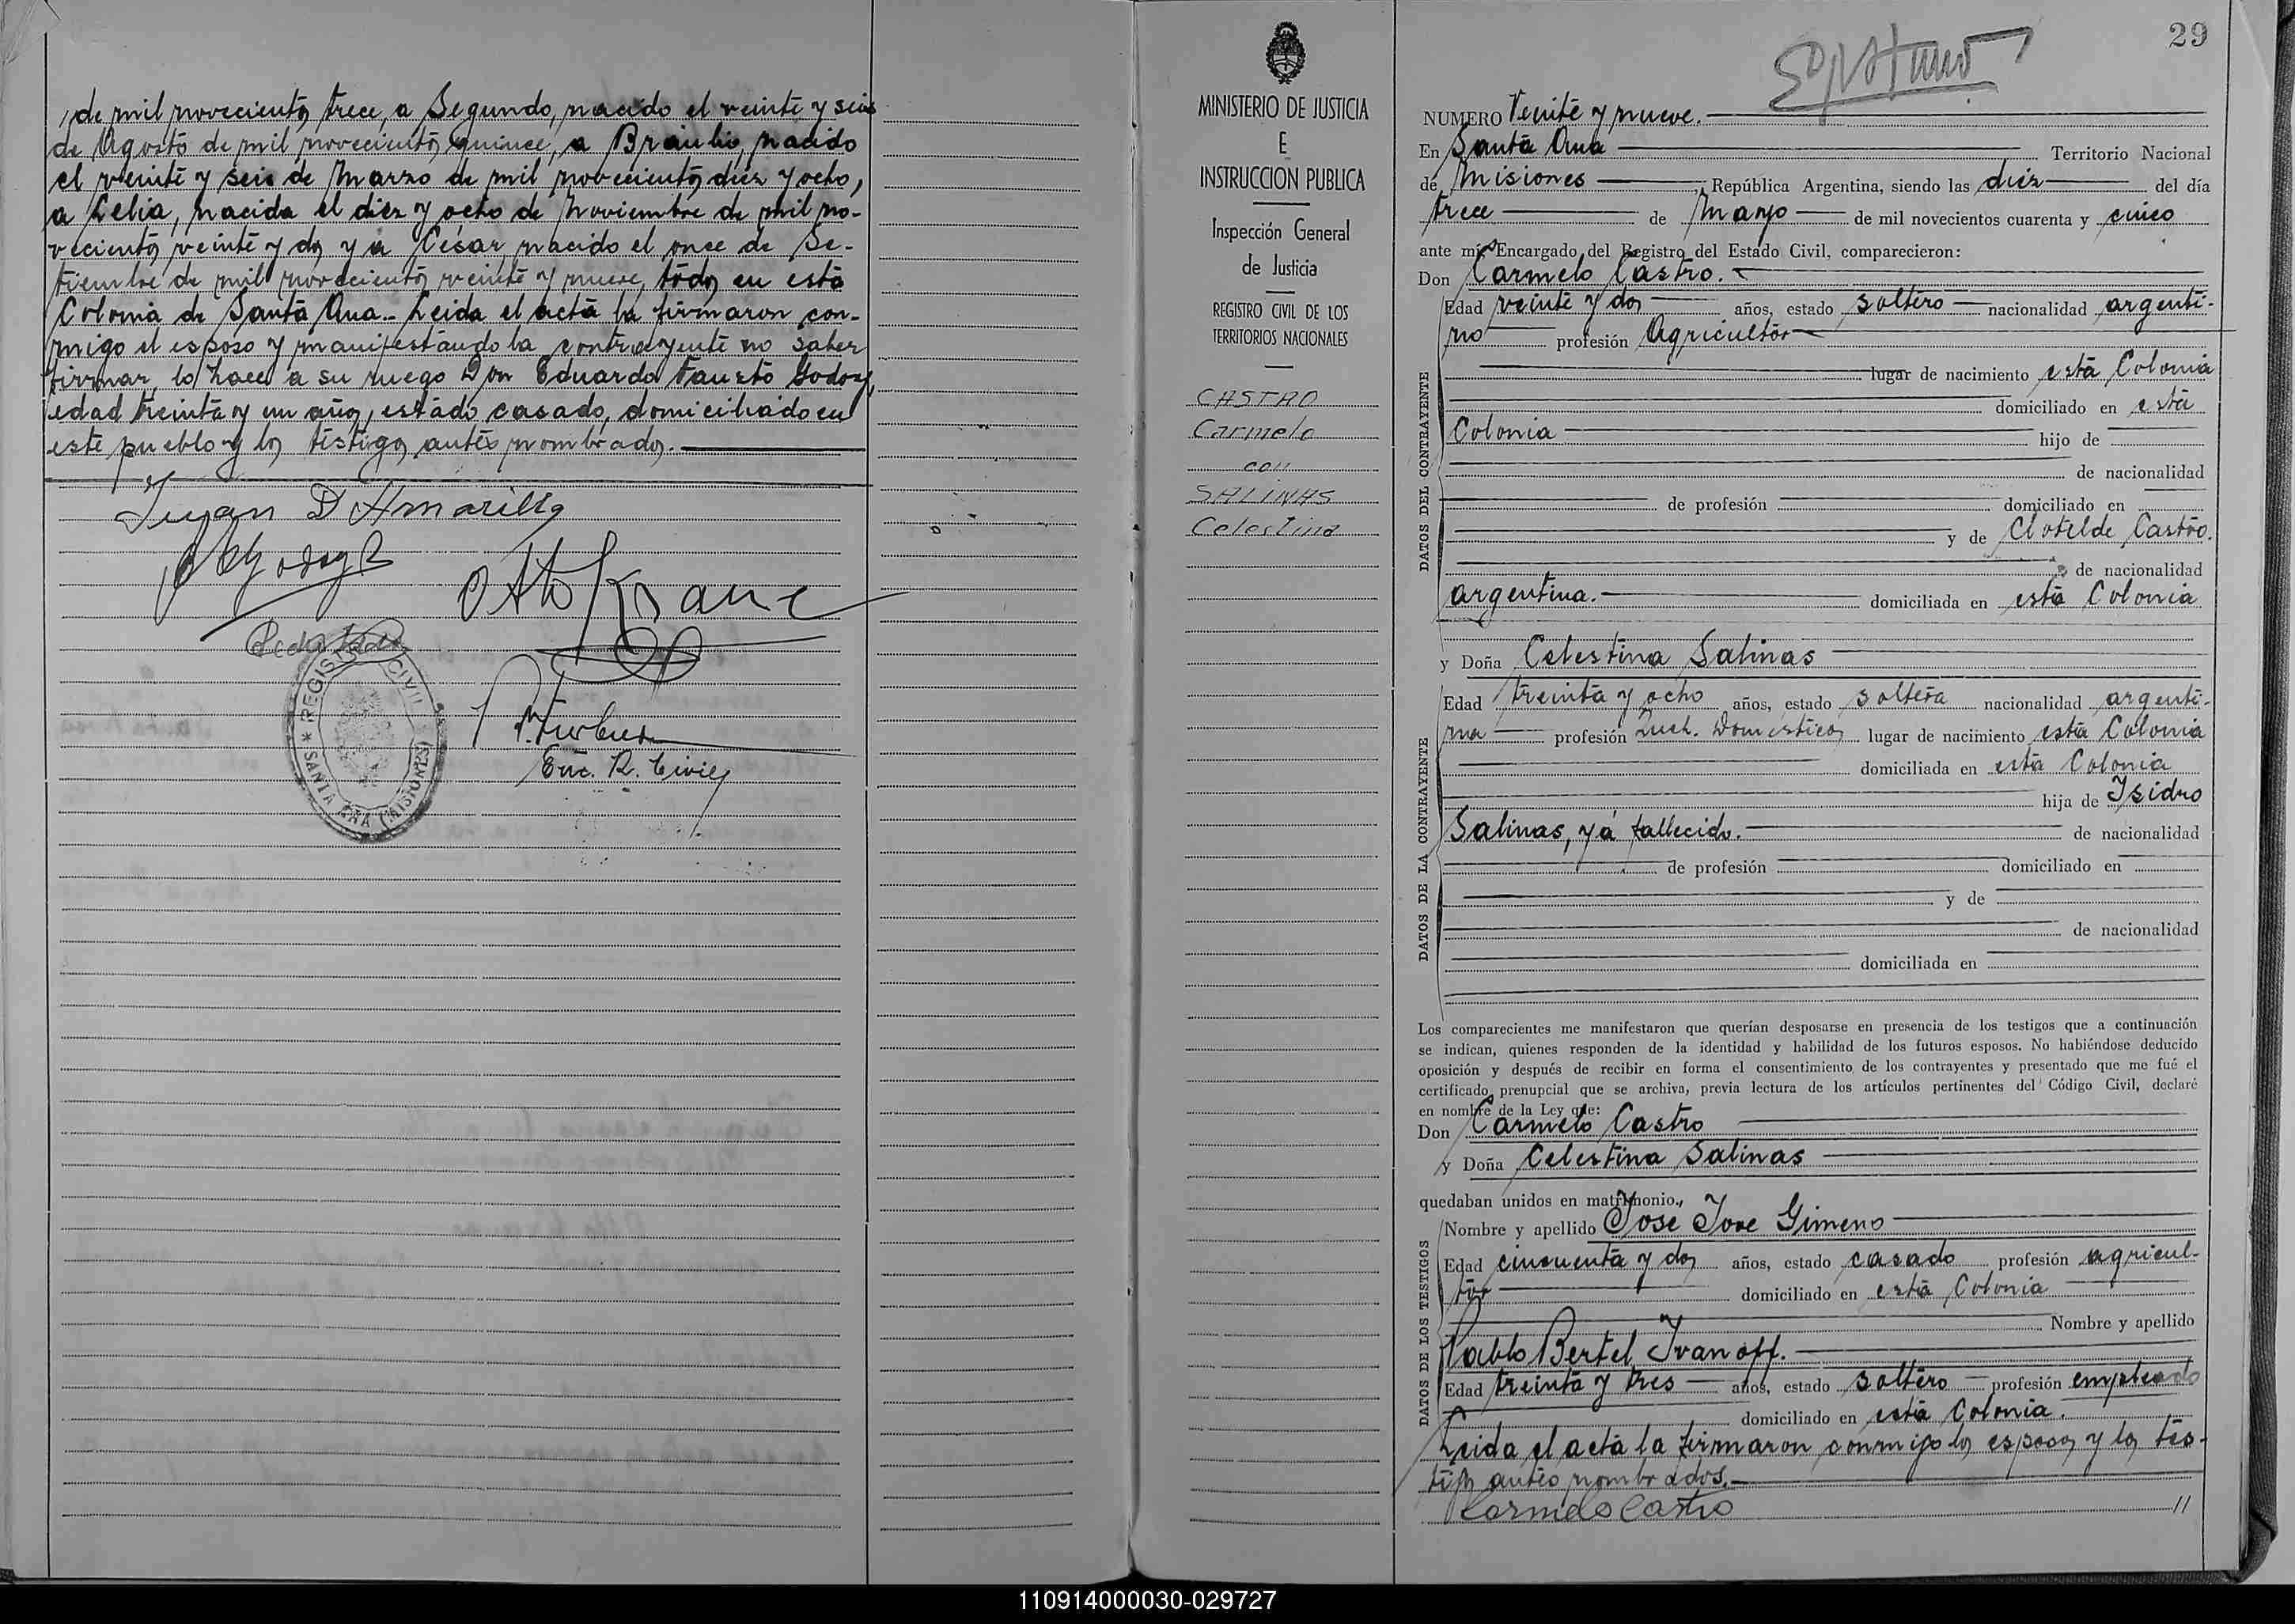 de mil novecientos trece, a Segundo, nacido el veinte y seis
de Agosto de mil novecientos quince, a Braulio, nacido
el veinte y seis de Marzo de mil novecientos diez y ocho,
a Lelia, nacida el diez y ocho de Noviembre de mil no-
vecientos veinte y dos y a César nacido el once de Se-
tiembre de mil novecientos veinte y nueve, todos en esta
Colonia de Santa Ana.- Leida el acta la firmaron con-
migo el esposo y manifestando la contrayente no saber
firmar, lo hace a su ruego Don Eduardo Fausto Godoy,
edad treinta y un años, estado casado, domiciliado en
este pueblo y los testigos antes nombrados.
Juan D Amarilla
Otto Krause
REGISTRO CIVIL
* SANTA ANA (MISIONES)
Enc. R. Civil
MINISTERIO DE JUSTICIA
E
INSTRUCCION PUBLICA
Inspección General
de Justicia
REGISTRO CIVIL DE LOS
TERRITORIOS NACIONALES
CASTRO
Carmelo
con
SALINAS
Celestina
29
NUMERO Veinte y nueve.
En Santa Ana Territorio Nacional
de Misiones, República Argentina, siendo las diez del día
trece de Marzo de mil novecientos cuarenta y cinco
ante mí, Encargado del Registro del Estado Civil, comparecieron:
Don Carmelo Castro.
DATOS DEL CONTRAYENTE
Edad veinte y dos años, estado soltero nacionalidad argenti-
no profesión Agricultor
lugar de nacimiento esta Colonia
domiciliado en esta
Colonia hijo de
de nacionalidad
de profesión domiciliado en
y de Clotilde Castro.
de nacionalidad
argentina. domiciliada en esta Colonia
y Doña Celestina Salinas
DATOS DE LA CONTRAYENTE
Edad treinta y ocho años, estado soltera nacionalidad argenti-
na profesión Queh. Domesticos lugar de nacimiento esta Colonia
domiciliada en esta Colonia
hija de Isidro
Salinas, yá fallecido. de nacionalidad
de profesión domiciliado en
y de
de nacionalidad
domiciliada en
Los comparecientes me manifestaron que querían desposarse en presencia de los testigos que a continuación
se indican, quienes responden de la identidad y habilidad de los futuros esposos. No habiéndose deducido
oposición y después de recibir en forma el consentimiento de los contrayentes y presentado que me fué el
certificado prenupcial que se archiva, previa lectura de los artículos pertinentes del Código Civil, declaré
en nombre de la Ley que:
Don Carmelo Castro
y Doña Celestina Salinas
quedaban unidos en matrimonio.
DATOS DE LOS TESTIGOS
Nombre y apellido José Jove Gimeno
Edad cincuenta y dos años, estado casado profesión agricul-
tor domiciliado en esta Colonia
Nombre y apellido
Pablo Bertel Ivanoff.
Edad treinta y tres años, estado soltero profesión empleado
domiciliado en esta Colonia.
Leida el acta la firmaron conmigo los esposos y los tes-
tigos antes nombrados.
Carmelo Castro //
110914000030-029727